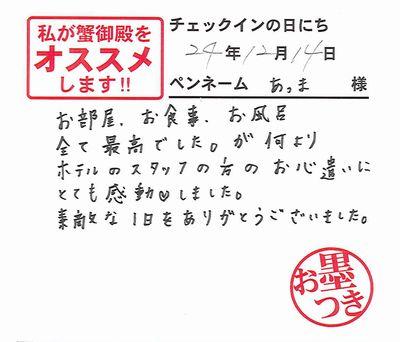 私が蟹御殿を
オススメ
します!!
チェックインの日にち
24年12月14日
ペンネーム あつま 様
お部屋、お食事、お風呂
全て最高でした。が何より
ホテルのスタッフの方のお心遣いに
とても感動♡しました。
素敵な1日をありがとうございました。
お墨つき